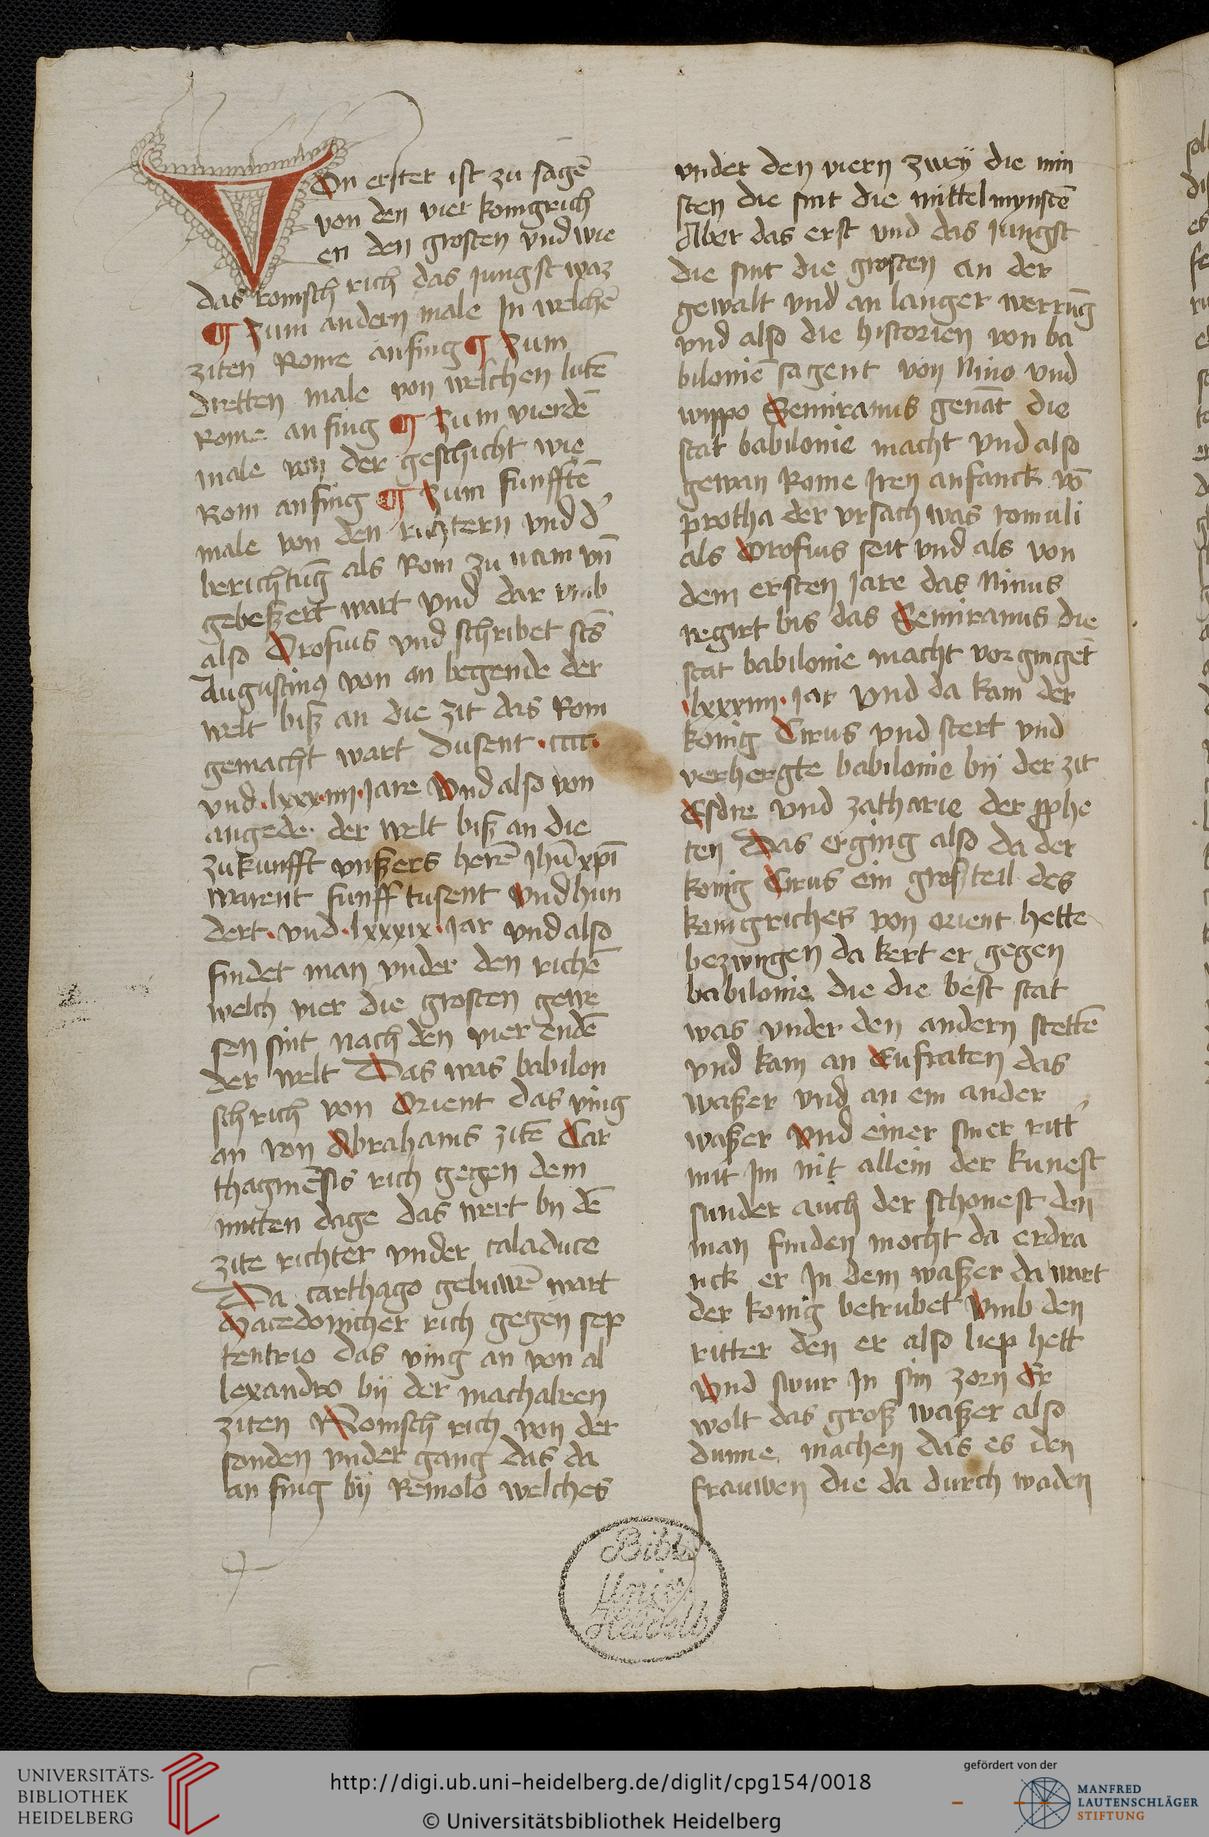 Von erster ist zu sagē
von den vier konigrich
en den grosten vnd wie
das romsch rich das Jungst waz
¶ Zum andern male In welchē
ziten Rome anfing ¶ Zum
dretten male von welchen lutē
Rome anfing ¶ Zum vierdē
male von der geschicht wie
Rom anfing ¶ Zum funfftē
male von den richtern vnd d'
berichtūg als Rom zu nam vn̄
gebeßert wart vnd dar vmb
also Orosius vnd schribet scs
Augustinus von an begende der
welt biß an die zit das Rom
gemacht wart dusent ·cccc·
vnd ·lxxxiiii· Jare Vnd also von
angede der welt biß an die
zukunfft vnßers herē Jhū xpī
warent funff tusent Vnd hun
dert · vnd · lxxxix · Jar vnd also
findet man vnder den richē
welch vier die grosten gewe
sen sint nach den vier endē
der welt Das was babilon
sch rich von Orient das ving
an von Abrahams zitē Car
thaginēsis rich gegen dem
mitten dage das wert by dē
zite richter vnder caladuce
Da carthago gebuwē wart
Macedonicher rich gegen sep
tentrio das ving an von al
lexandro bij der machabeen
ziten Romsch rich von der
sonden vnder gang das da
an fing bij Remolo welches
vnder den viern zweÿ die min
sten die sint die mittelmynstē
Aber das erst vnd das Jungst
die sint die grosten an der
gewalt vnd an langer werrūg
vnd also die historien von ba
bilonie sagent von Nino vnd
wippo Semiramis genāt die
stat babilonie macht vnd also
gewan Rome Iren anfanck vō
protha der vrsach was romuli
als Orosius seit vnd als von
dem ersten Jare das Ninus
regirt bis das Semiramis die
stat babilonie macht vorgingēt
·lxxxiiii· Jar Vnd da kam der
konig Cirus vnd stert vnd
verhergte babilonie bij der zit
Esdre vnd zatharie der pphe
ten Das erging also da der
konig Cirus ein groß teil des
kinigriches von orient hette
bezwngen da kert er gegen
babilonie die die best stat
was vnder den andern stettē
vnd kam an Eufraten das
waßer vnd an ein ander
waßer Vnd einer siner ritt'
mit Im nit allein der kunest
sunder auch der schonest den
man finden mocht da erdra
nck er In dem waßer da wart
der konig betrubet Vmb den
ritter den er also liep hett
Vnd swur In sim zorn Er
wolt das groß waßer also
dunne machen das es den
frauwen die da durch waden
Bibl.
Univ.
Heidelb
UNIVERSITÄTS-
BIBLIOTHEK
HEIDELBERG
http://digi.ub.uni-heidelberg.de/diglit/cpg154/0018
© Universitätsbibliothek Heidelberg
gefördert von der
MANFRED
LAUTENSCHLÄGER
STIFTUNG